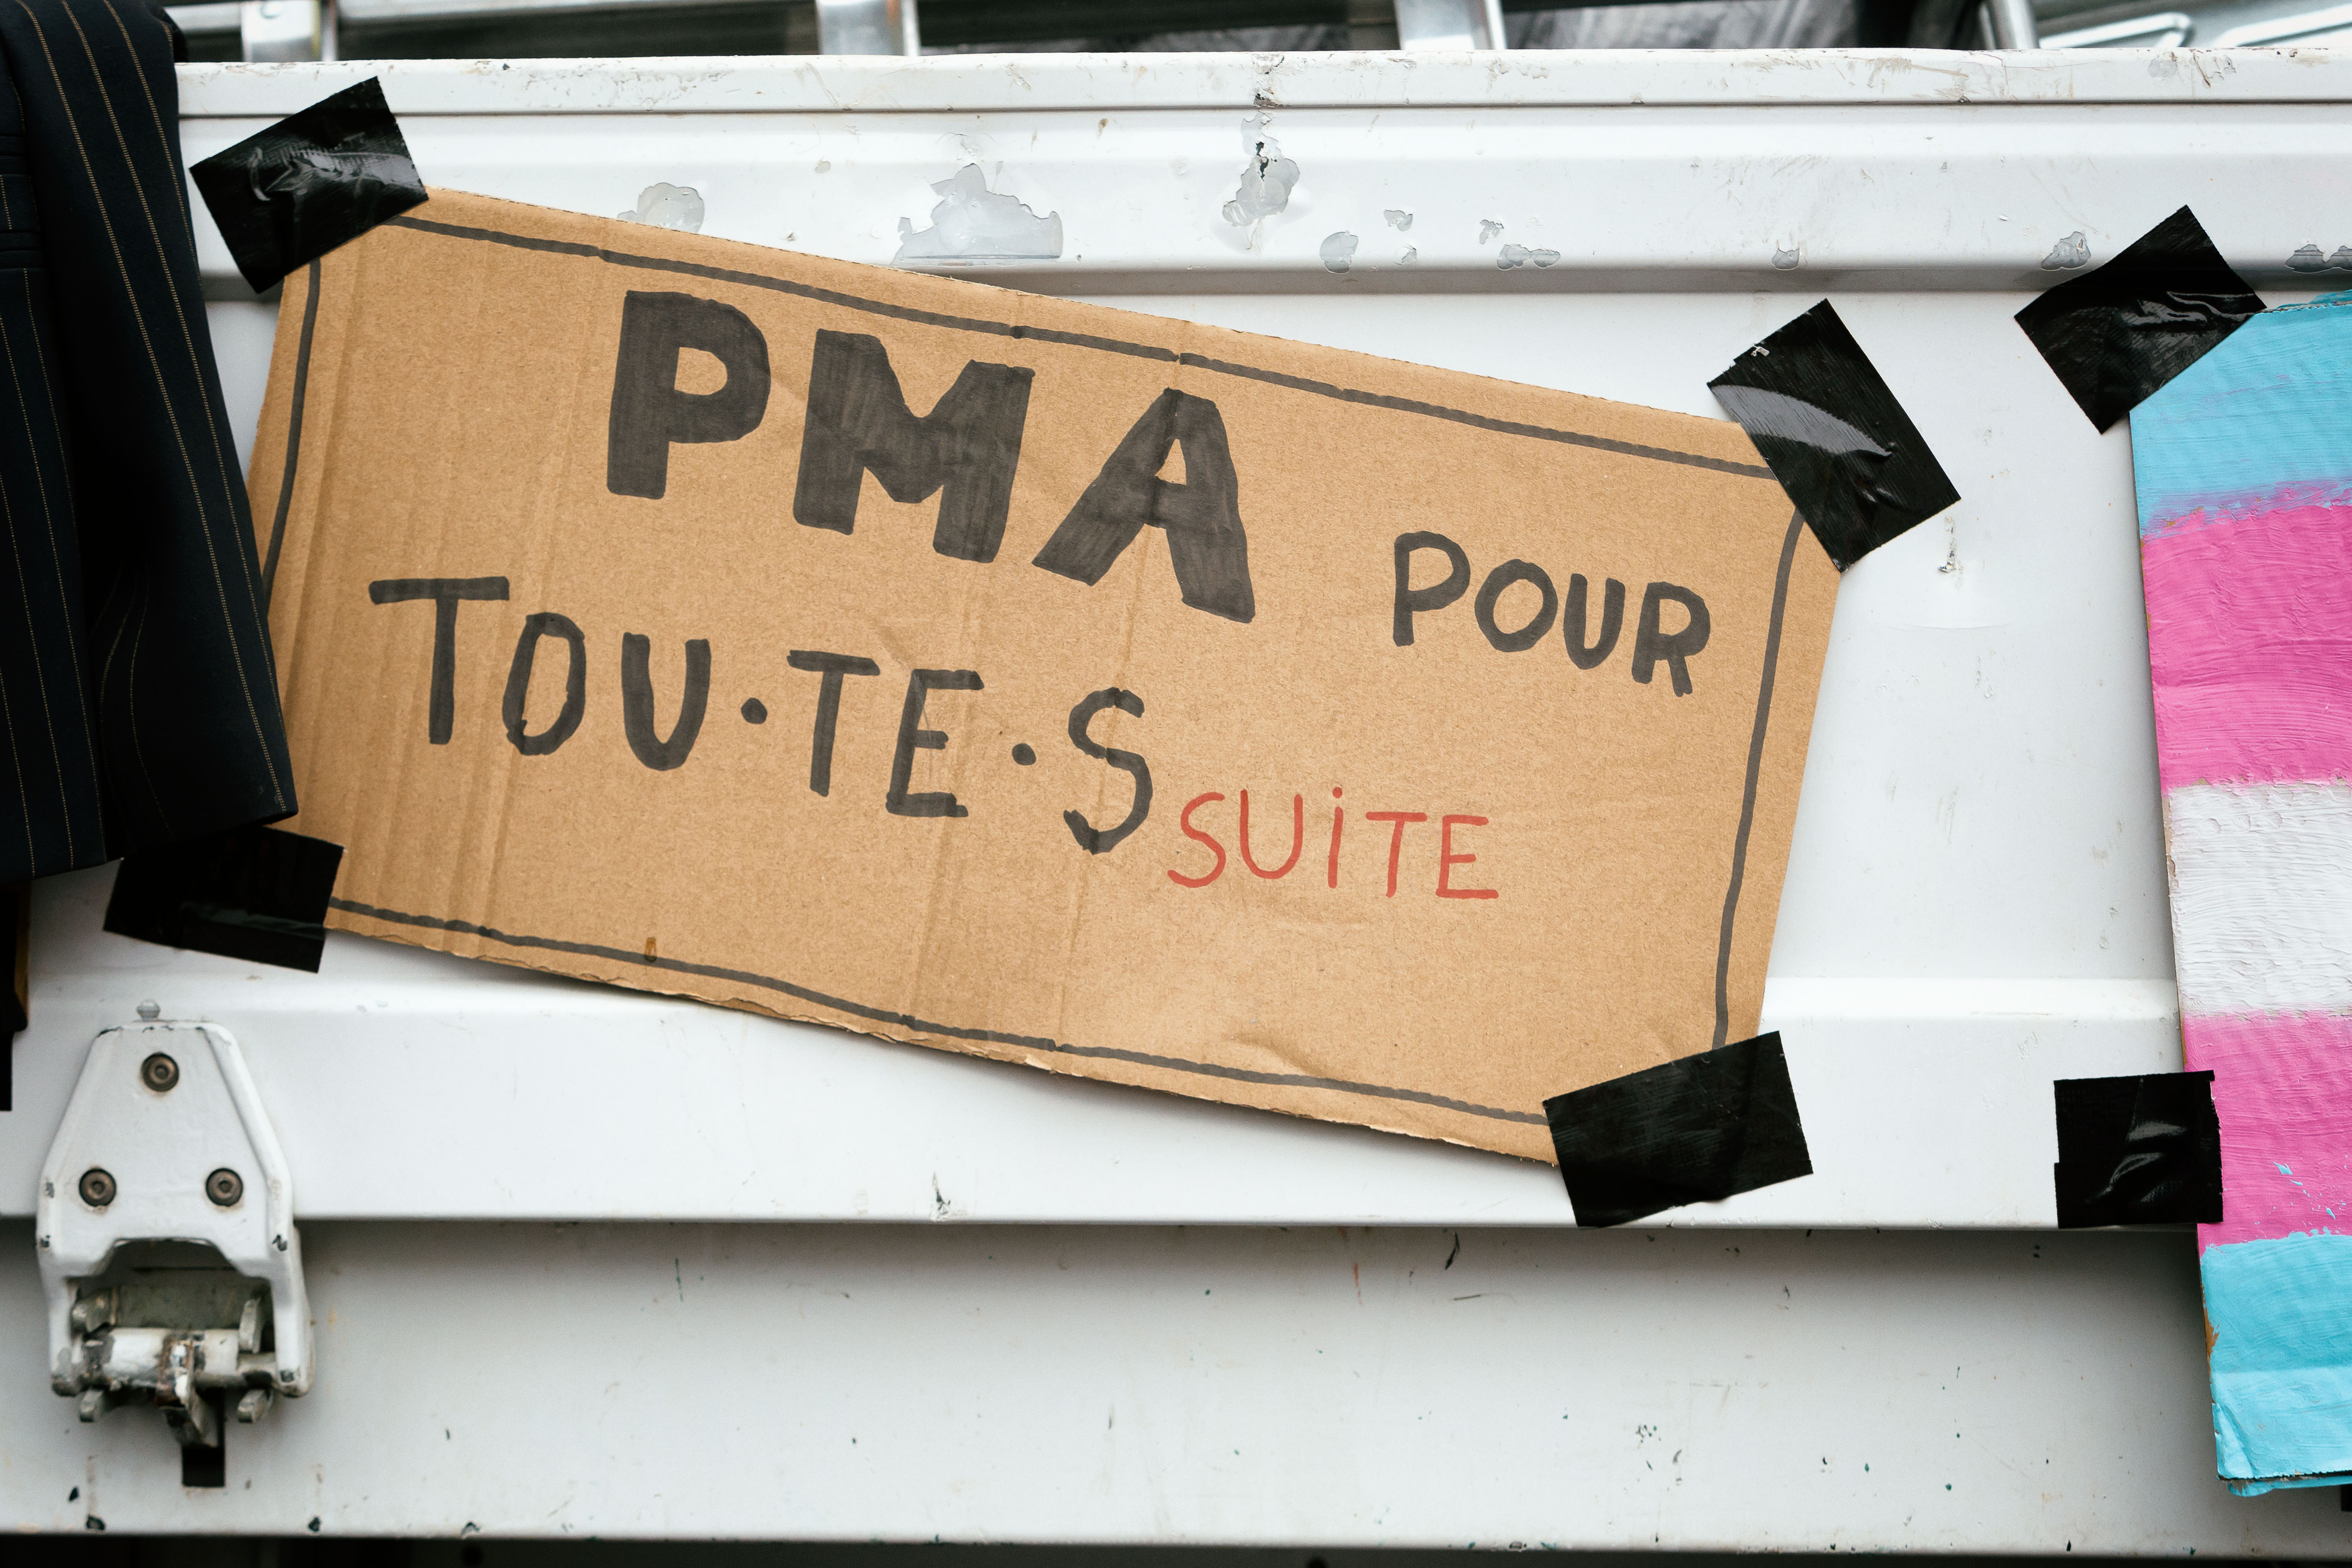 PMA POUR
TOU·TE·S SUiTE